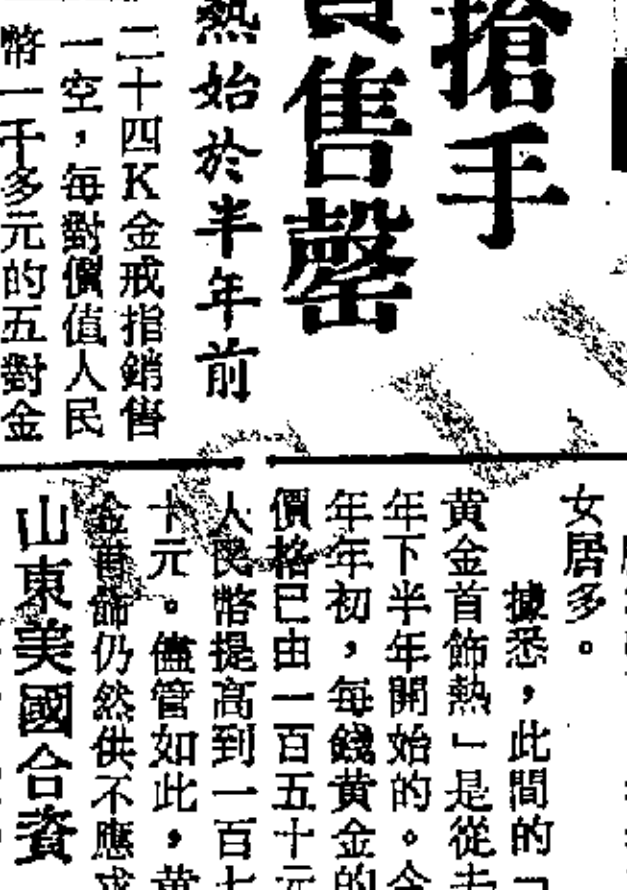 搶手
售罄
熱始於半年前
二十四K金戒指銷售
一空，每對價值人民
幣一千多元的五對金
女居多。
據悉，此間的「
黃金首飾熱」是從去
年下半年開始的。今
年年初，每錢黃金的
價格已由一百五十元
人民幣提高到一百七
十元。儘管如此，黃
金首飾仍然供不應求
山東美國合資